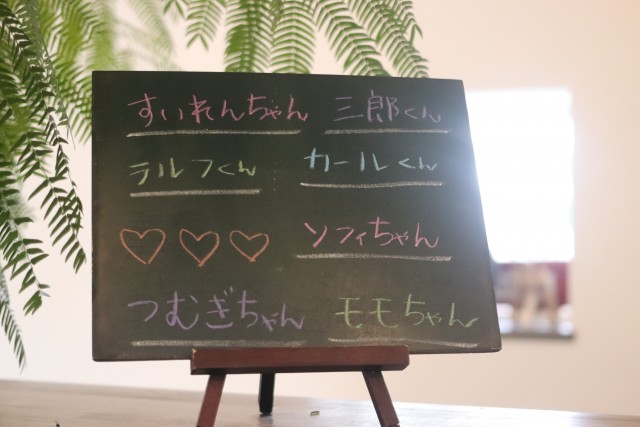 すいれんちゃん 三郎くん
テルフくん カールくん
♡♡♡ ソフィちゃん
つむぎちゃん モモちゃん